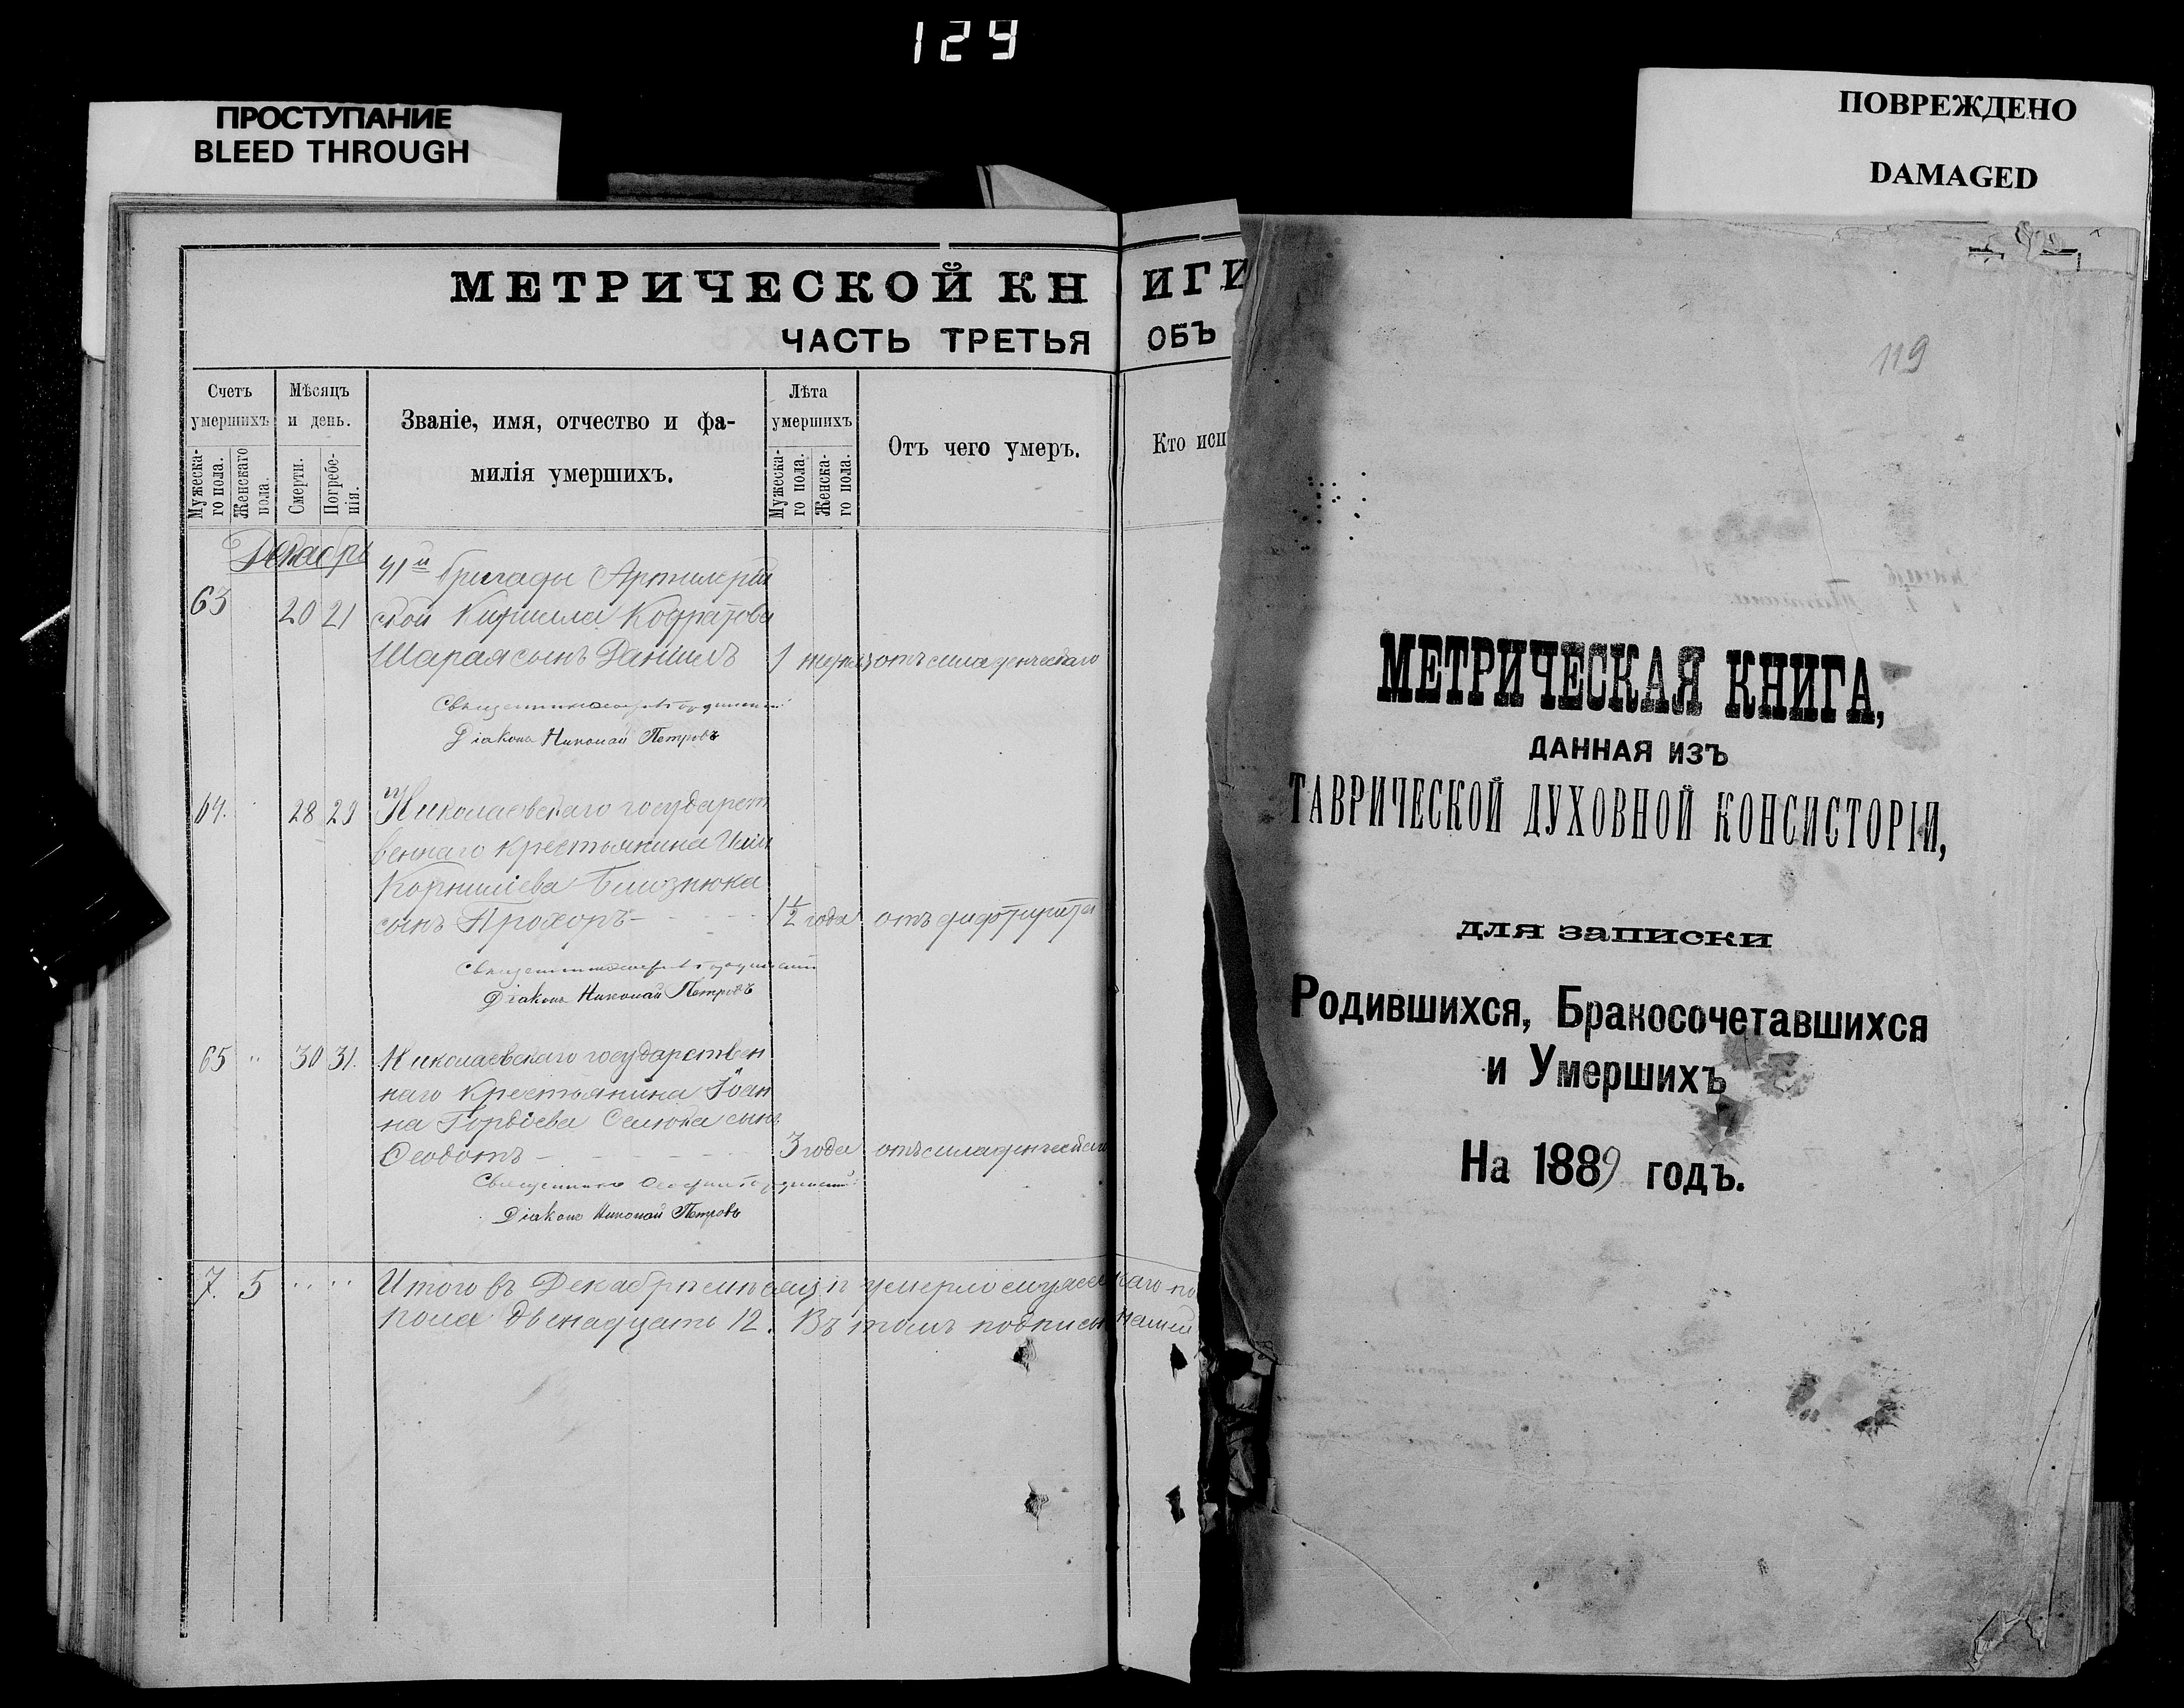 129
ПРОСТУПАНИЕ
BLEED THROUGH
ПОВРЕЖДЕНО
DAMAGED
МЕТРИЧЕСКОЙ КН
ЧАСТЬ ТРЕТЬЯ
Счетъ умершихъ
Мужеска-
го пола.
Женскаго
пола.
Мѣсяцъ
и день.
Смерти.
Погребе-
нія.
Званіе, имя, отчество и фа-
милія умершихъ.
Лѣта
умершихъ
Мужеска-
го пола.
Женска-
го пола.
Отъ чего умер.
Декабрь
63 20 21
41й бригады Артилерій
ской Кирилла Кодратова
Шарая сынъ Даніилъ 1 отъ младенческаго
Священникъ
Діаконъ Николай Петровъ
64. 28 29 Николаевскаго государст
веннаго крестьянина Иліи
Корниліева Близнюка
сынъ Прохоръ - 1 1/2 года отъ дифтерита
Священникъ
Діаконъ Николай Петровъ
65 " 30 31. Николаевскаго государствен
наго Крестьянина Іоан
на Гордіева Селюка сынъ
Ѳеодотъ - 3 года отъ младенческаго
Священникъ
Діаконъ Николай Петровъ
7. 5 Итого въ Декабрѣ мѣсяцѣ умерло мужескаго по
пола двенадцать 12. Въ томъ подписы
ИГИ
ОБЪ
Кто исп
119
МЕТРИЧЕСКАЯ КНИГА,
ДАННАЯ ИЗЪ
ТАВРИЧЕСКОЙ ДУХОВНОЙ КОНСИСТОРІИ,
для записки
Родившихся, Бракосочетавшихся
и Умершихъ
На 1889 годъ.